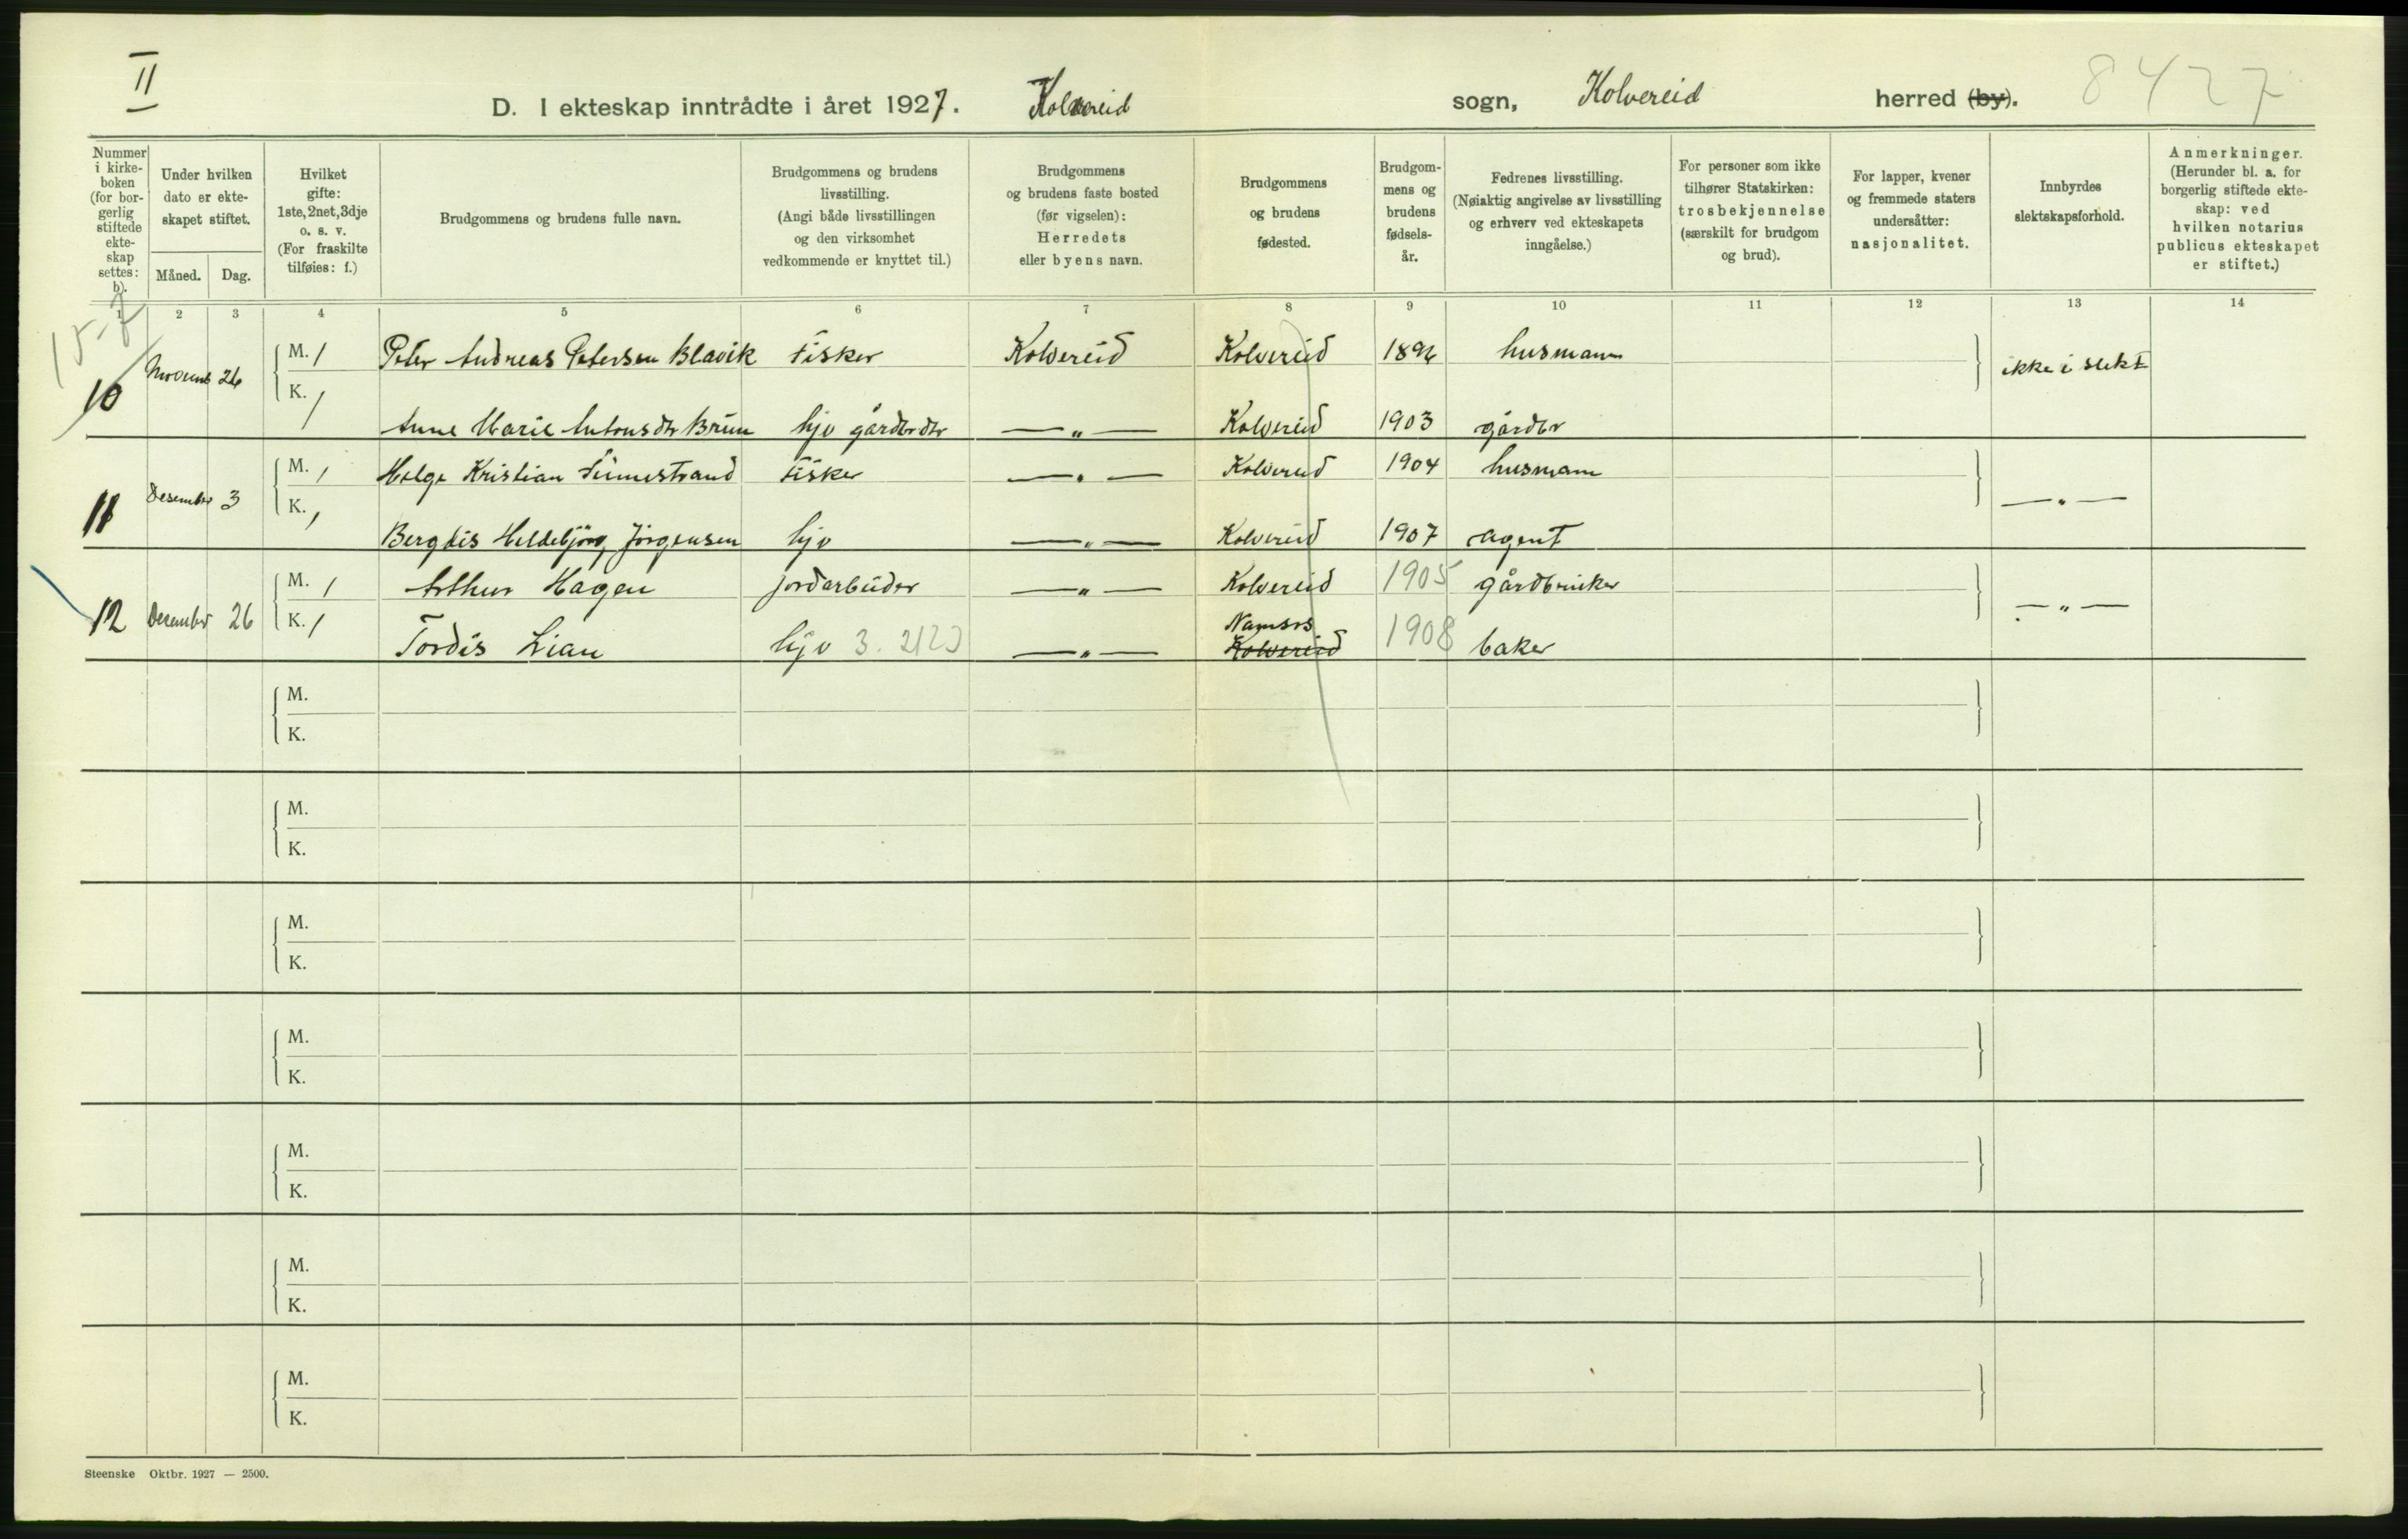 II
D. I ekteskap inntrådte i året 1927. Kolvereid sogn, Kolvereid herred (by). 8427
Nummer i kirke-boken (for bor-gerlig stiftede ekte-skap settes: b).
Under hvilken dato er ekte-skapet stiftet.
Måned. Dag.
Hvilket gifte: 1ste, 2net, 3dje o. s. v. (For fraskilte tilføies: f.)
Brudgommens og brudens fulle navn.
Brudgommens og brudens livsstilling. (Angi både livsstillingen og den virksomhet vedkommende er knyttet til.)
Brudgommens og brudens faste bosted (før vigselen): Herredets eller byens navn.
Brudgommens og brudens fødested.
Brudgom-mens og brudens fødsels-år.
Fedrenes livsstilling. (Nøiaktig angivelse av livsstilling og erhverv ved ekteskapets inngåelse.)
For personer som ikke tilhører Statskirken: trosbekjennelse (særskilt for brudgom og brud).
For lapper, kvener og fremmede staters undersåtter: nasjonalitet.
Innbyrdes slektskapsforhold.
Anmerkninger. (Herunder bl. a. for borgerlig stiftede ekte-skap: ved hvilken notarius publicus ekteskapet er stiftet.)
1 2 3 4 5 6 7 8 9 10 11 12 13 14
15-7
10 Novemb 26 M. 1 Peter Andreas Petersen Blavik fisker Kolvereid Kolvereid 189 husmann ikke i slekt
K. 1 Anne Marie Antonsdtr Brun hjv gårdbrdtr —"— Kolvereid 1903 gårdbr
11 Desember 3 M. 1 Helge Kristian Finnestrand fisker —"— Kolvereid 1904 husmann —"—
K. 1 Bergdis Heldebjörg Jörgensen hjv —"— Kolvereid 1907 agent
12 Desember 26 M. 1 Arthur Hagen jordarbeider —"— Kolvereid 1905 gårdbruker —"—
K. 1 Tordis Lian hjv 3. —"— Namsos Kolvereid 1908 baker
M.
K.
M.
K.
M.
K.
M.
K.
M.
K.
M.
K.
M.
K.
Steenske Oktbr. 1927 — 2500.